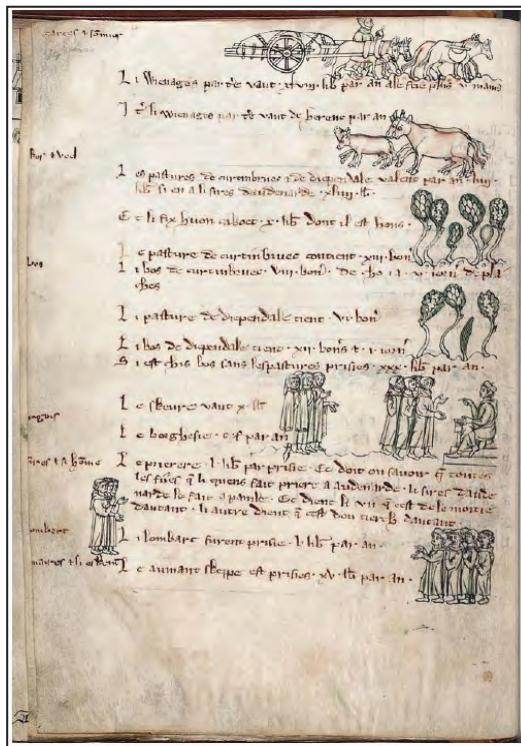 L i Wienages par tře vaut · xlviii · lib par an ale fcie plus v mains
I tē li wienages par tře vaut de herent par an
L es pastures de curtinbrues & de diependale valent par an · liiii ·
lib̄ si en a li sires daudenarde · xliiii · ll̄
E t li fix huon caboet · x · lib̄ dont il est hons ·
L e pasture de curtinbrues contient · xiii · bon̄
L i bos de curtinbrues · viii · bon̄ · De cho i a · v · iorn̄ de pla
ches
bos
L i pasture de diependale tient · vi · bon̄
L i bos de diependale tient · xii · bon̄s & · i · iorn̄
S i est chis bos sans les pastures prisies · xxx · lib̄ par an ·
L e skeures vaut x · ll̄
L e borghesie · par an
L e priiere · l · lib̄ par prisie · Et doit on savoir q̄ toutes
les q̄ li quens fait priiere a audenarde · li sires daude
narde le fait a pamle · Et dient li vn q̄ cest de le moitie
dautant · li autre dient q̄ cest dou tierch dautant ·
ombert
L i lombart furent prisie · l · lib̄ par an ·
L e aumant skepe est prisies · xv · lib̄ par an ·